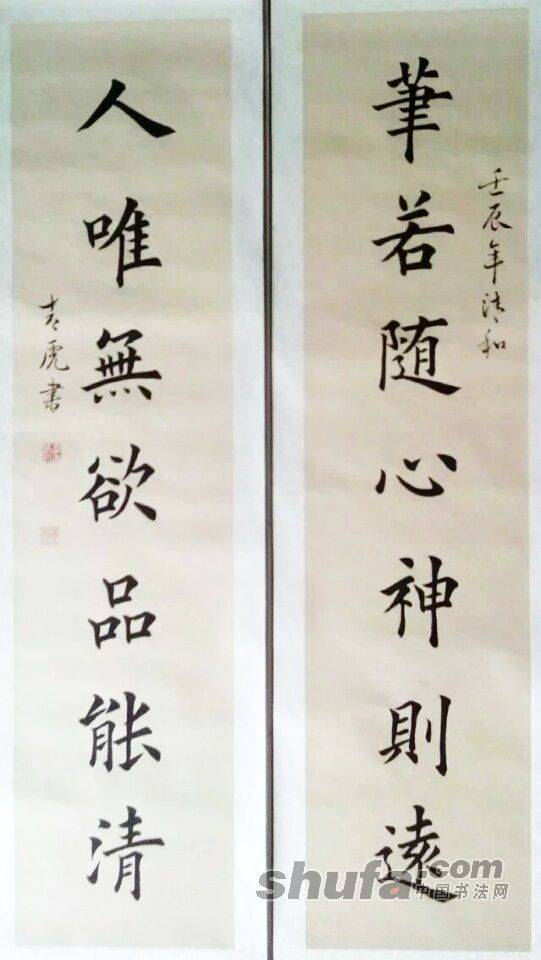 壬辰年清和
筆若随心神則遠
人唯無欲品能清
虎書
shufa.com
中国书法网